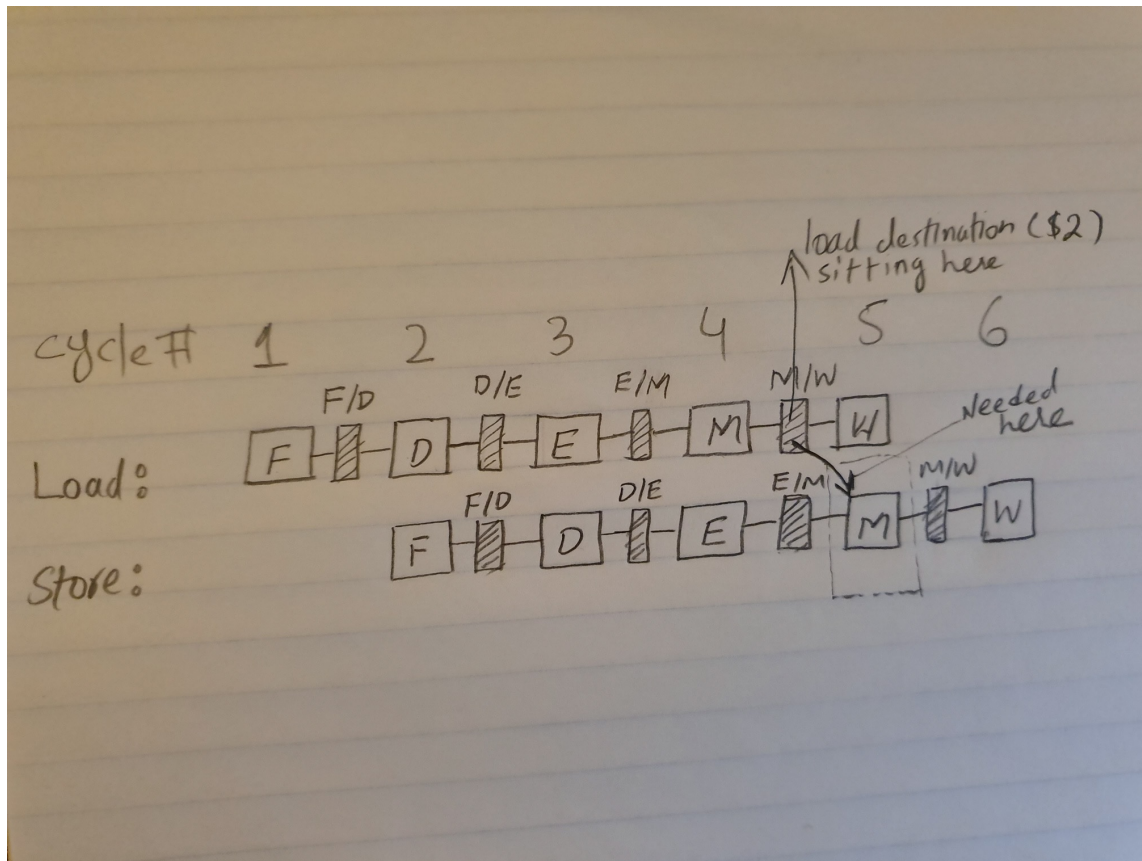 load destination ($2)
sitting here
cycle # 1 2 3 4 5 6
F/D D/E E/M M/W
Needed
here
Load: F D E M W
F/D D/E E/M M/W
Store: F D E M W